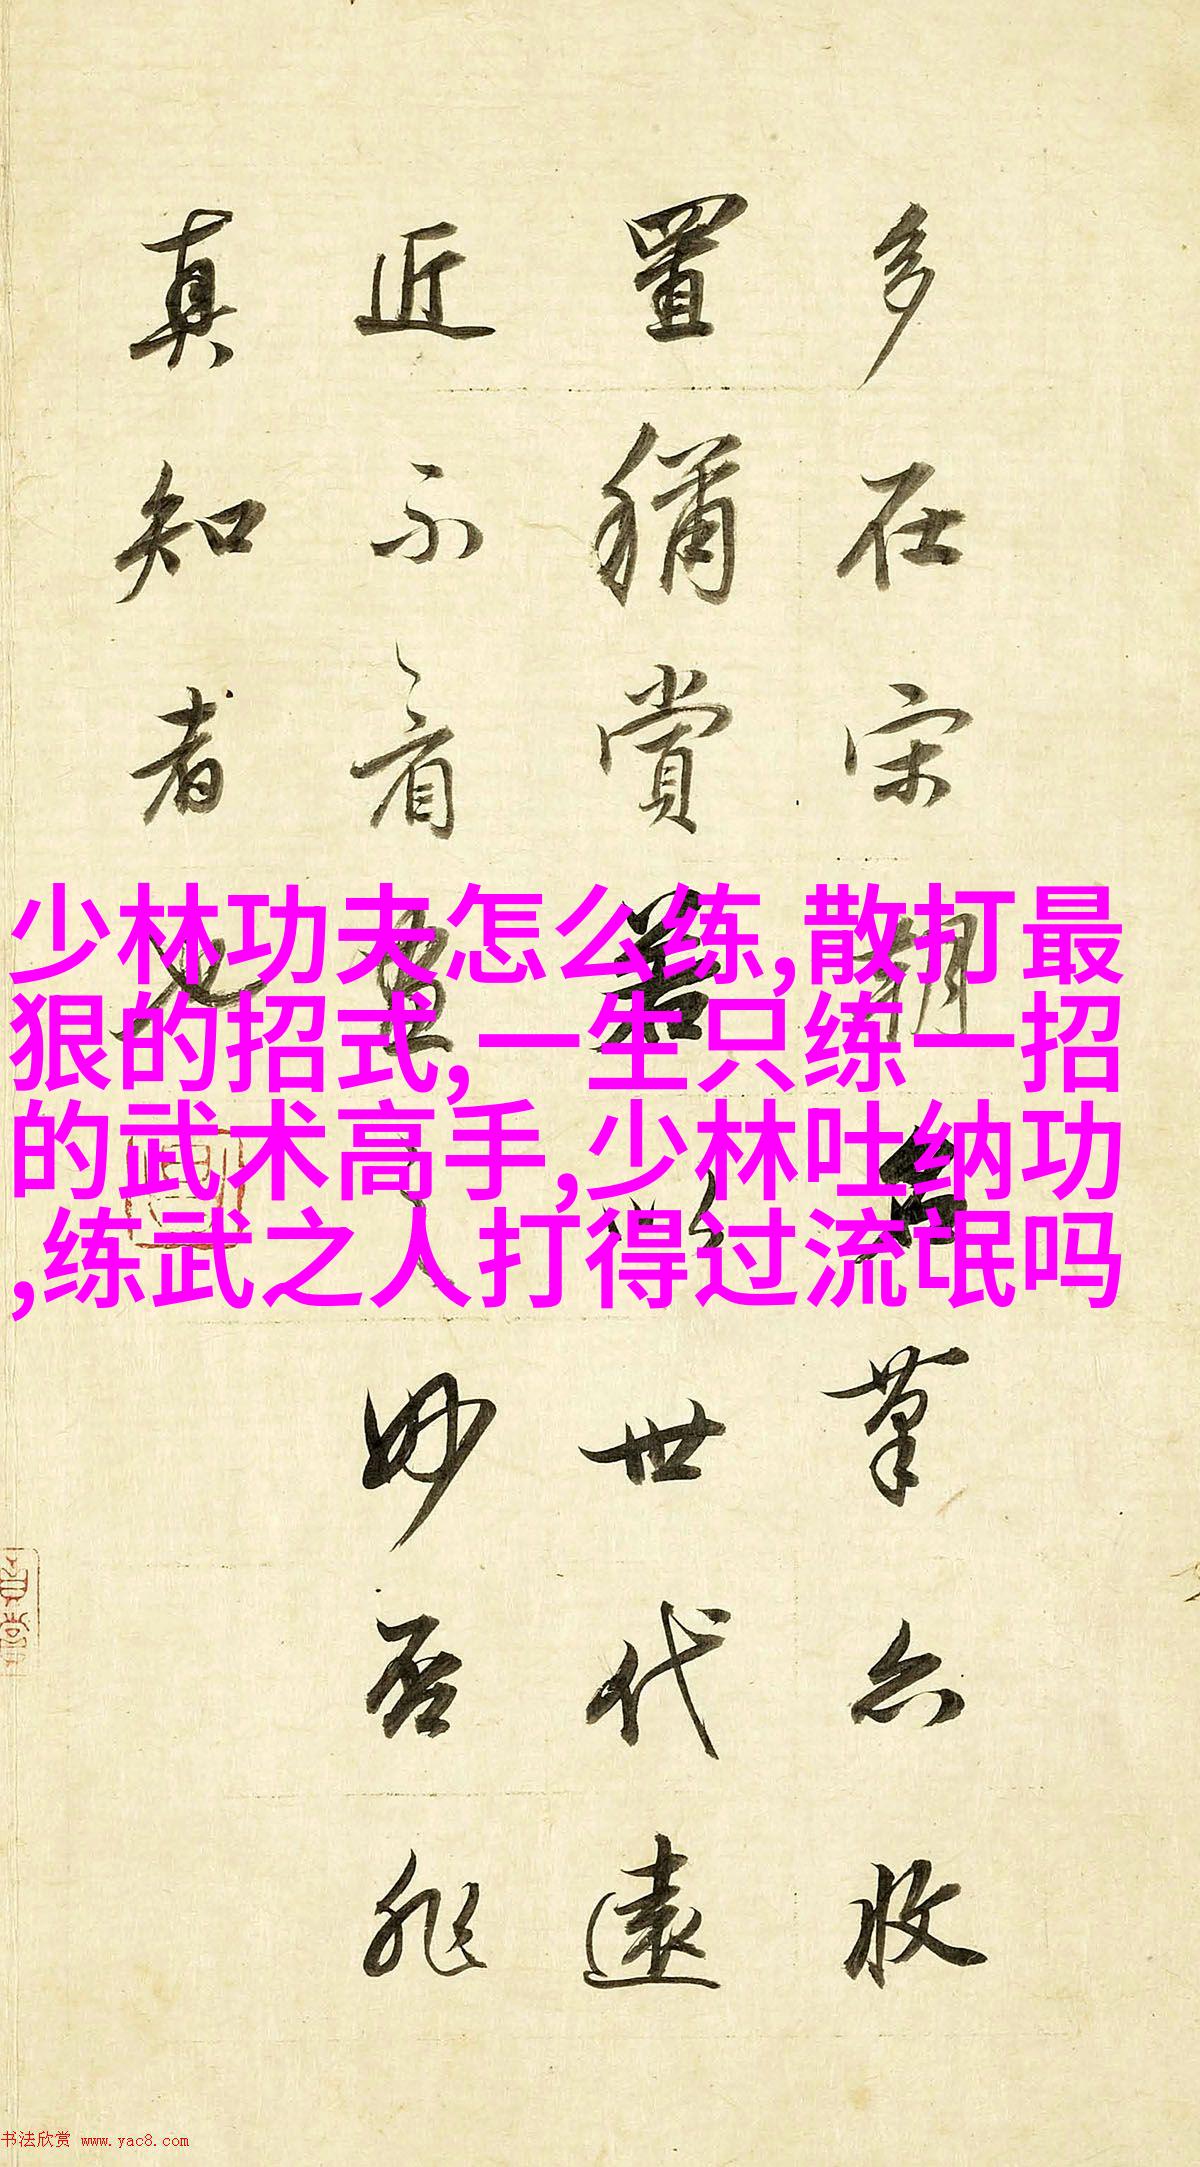 多在宋朝名筆亦收
置稱賞若以世代遠
近不看畫之妙否非
真知者也
少林功夫怎么练,散打最
狠的招式,一生只练一招
的武术高手,少林吐纳功
,练武之人打得过流氓吗
书法欣赏 www.yac8.com